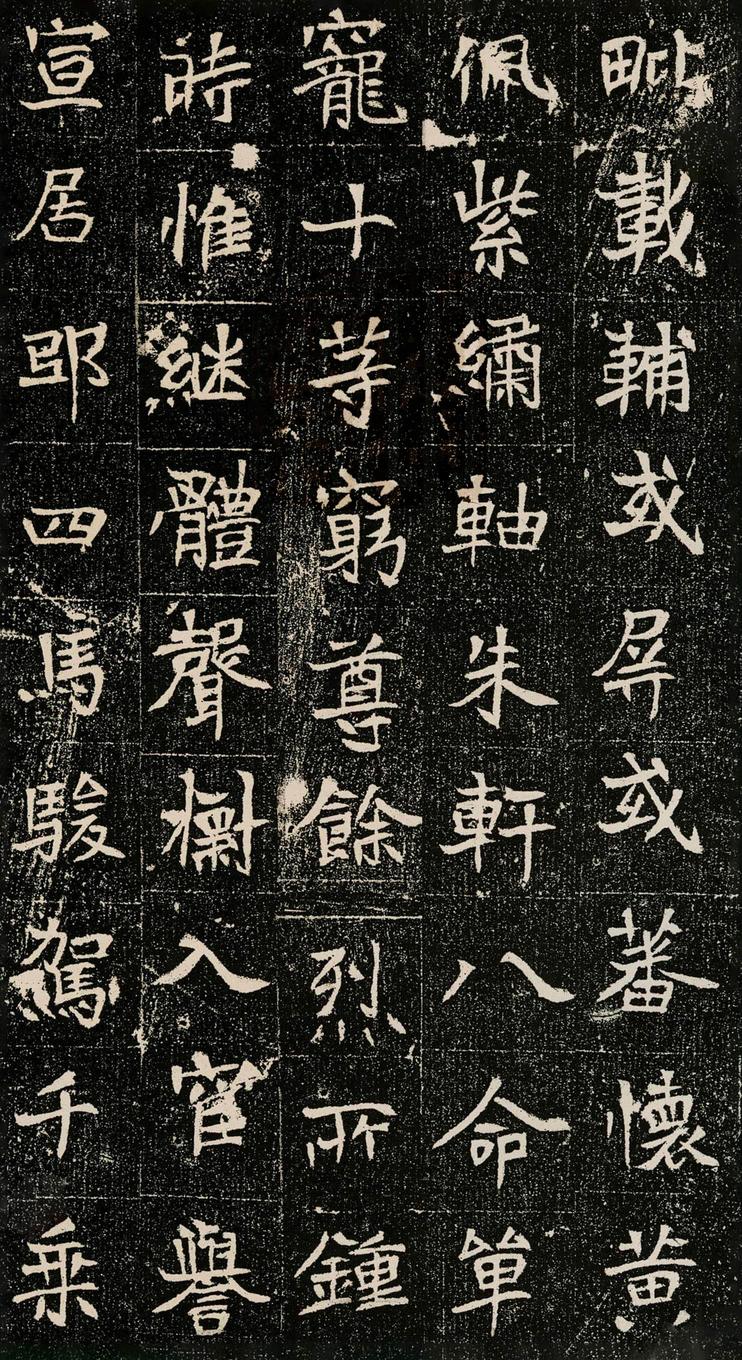 毗載輔或屏或蕃懷黃
佩紫繡軸朱軒八命單
寵十等窮尊餘烈所鍾
時惟継體聲衡入宦譽
宣居邸四馬駿駕千乘